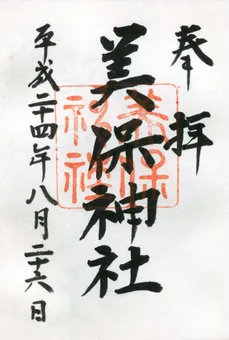 奉拝
美保神社
美保神社
平成二十四年八月二十六日